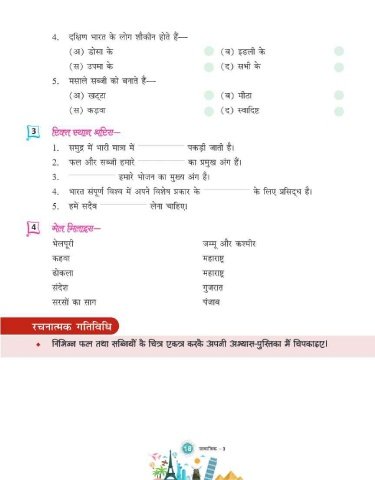 4. दक्षिण भारत के लोग शौकीन होते हैं—
(अ) डोसा के (ब) इडली के
(स) उपमा के (द) सभी के
5. मसाले सब्जी को बनाते हैं—
(अ) खट्टा (ब) मीठा
(स) कड़वा (द) स्वादिष्ट
3 रिक्त स्थान भरिए—
1. समुद्र में भारी मात्रा में ____________ पकड़ी जाती है।
2. फल और सब्जी हमारे ____________ का प्रमुख अंग हैं।
3. ____________ हमारे भोजन का मुख्य अंग है।
4. भारत संपूर्ण विश्व में अपने विशेष प्रकार के ____________ के लिए प्रसिद्ध है।
5. हमें सदैव ____________ लेना चाहिए।
4 मेल मिलाइए—
भेलपूरी जम्मू और कश्मीर
कहवा महाराष्ट्र
ढोकला महाराष्ट्र
संदेश गुजरात
सरसों का साग पंजाब
रचनात्मक गतिविधि
• विभिन्न फल तथा सब्जियों के चित्र एकत्र करके अपनी अभ्यास-पुस्तिका में चिपकाइए।
18 सामाजिक - 3